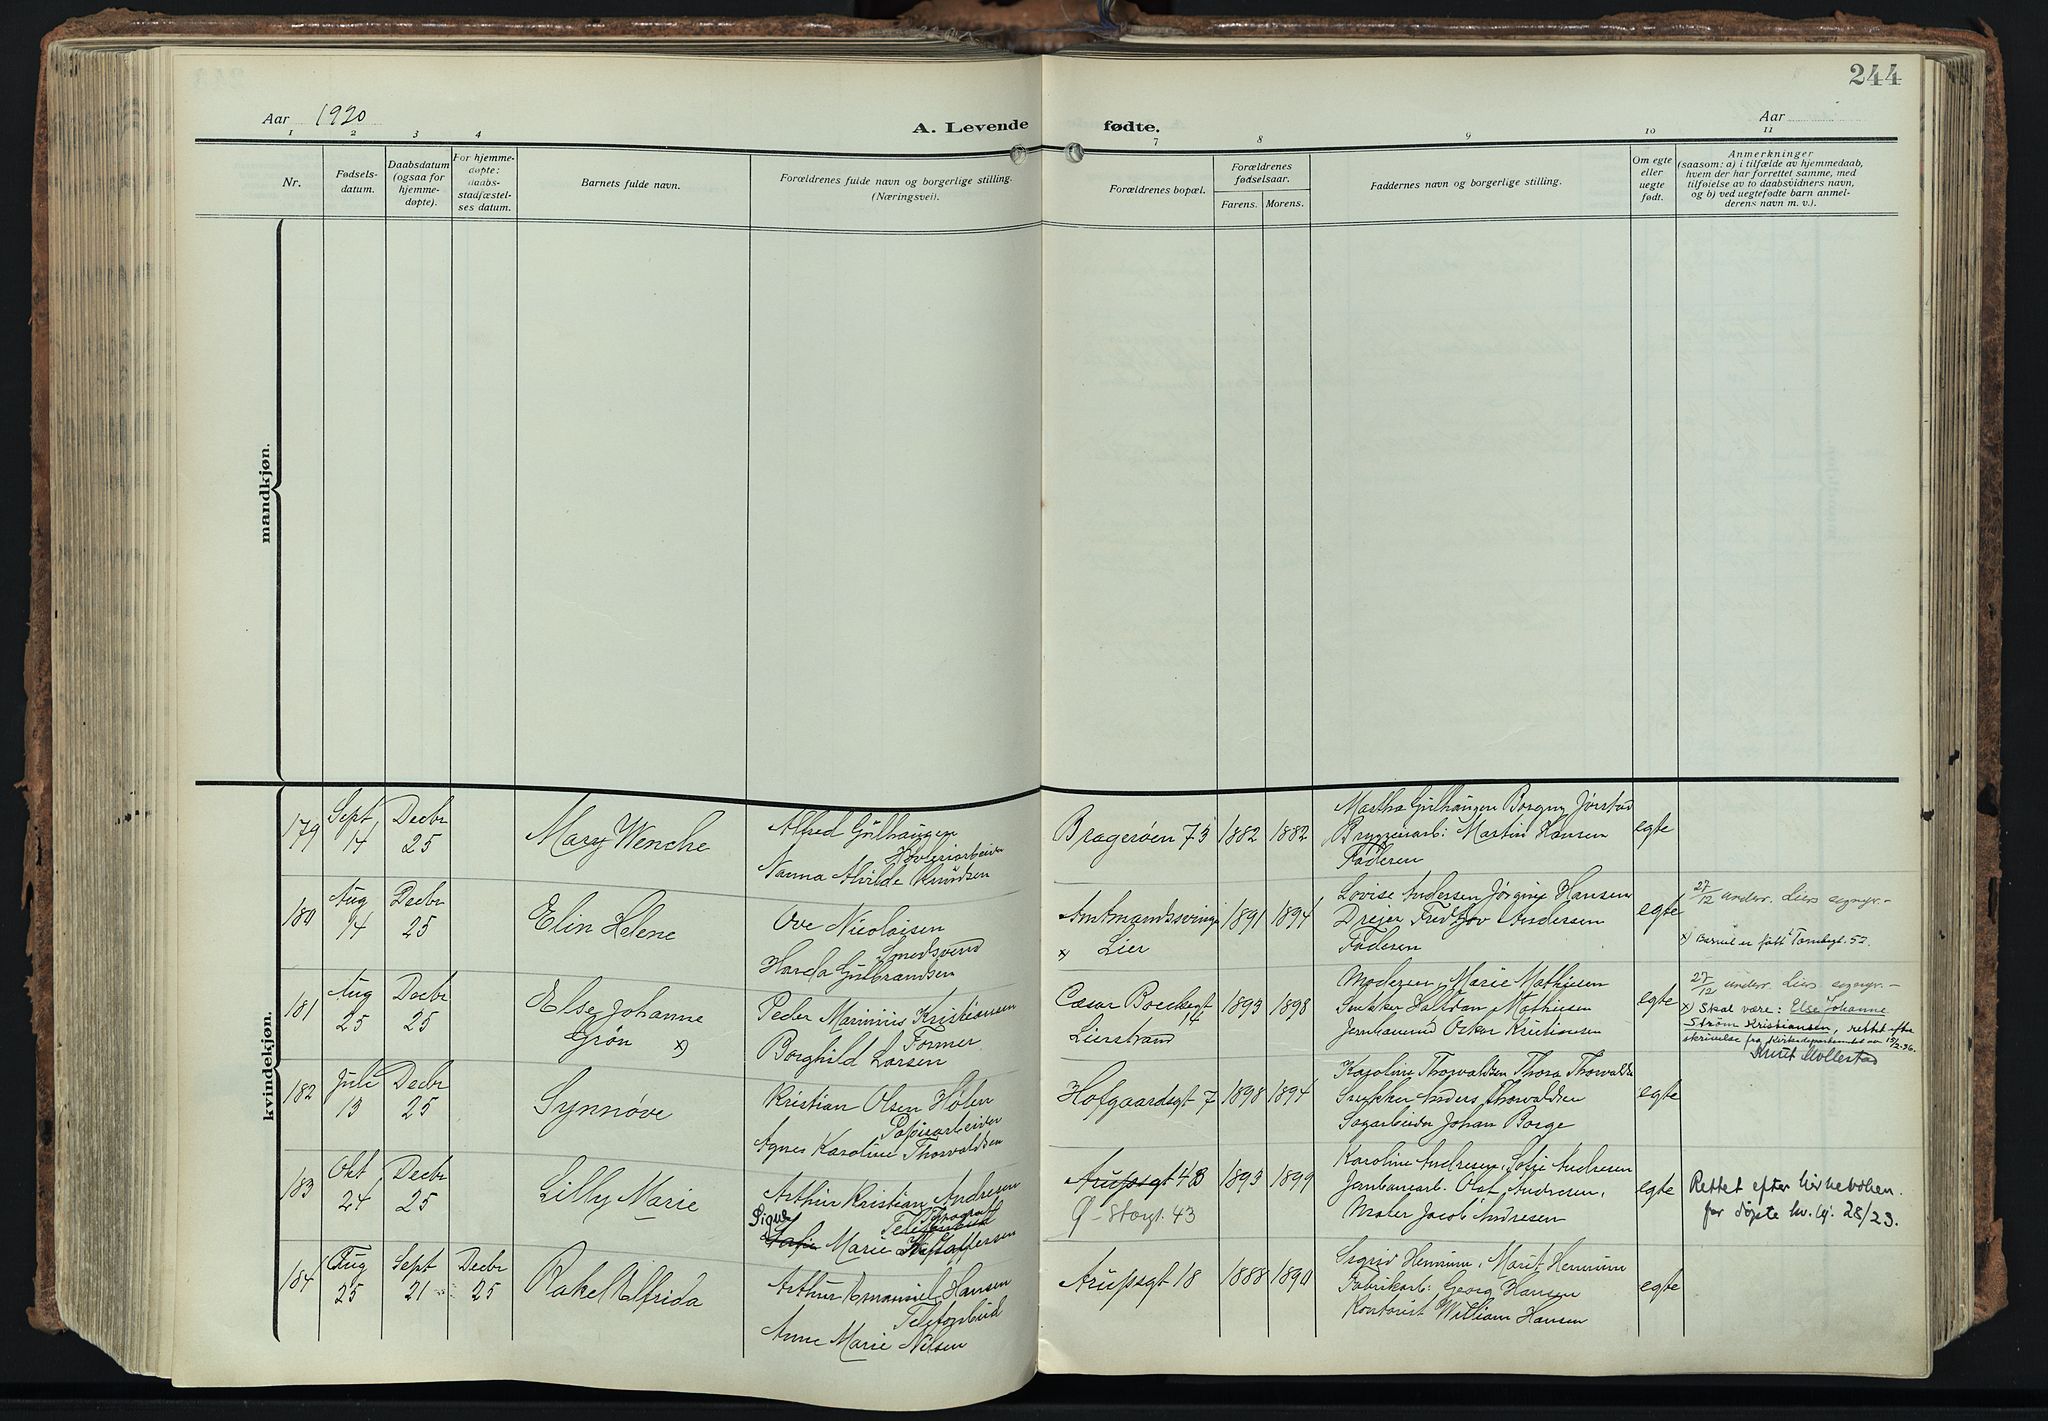 244
Aar 1920
A. Levende fødte.
Aar
1 2 3 4 7 8 9 10 11
Nr.
Fødsels-
datum.
Daabsdatum
(ogsaa for
hjemme-
døpte).
For hjemme-
døpte:
daabs-
stadfæstel-
ses datum.
Barnets fulde navn.
Forældrenes fulde navn og borgerlige stilling.
(Næringsvei).
Forældrenes bopæl.
Forældrenes
fødselsaar.
Farens. Morens.
Faddernes navn og borgerlige stilling.
Om egte
eller
uegte
født.
Anmerkninger
(saasom: a) i tilfælde av hjemmedaab,
hvem der har forrettet samme, med
tilføielse av to daabsvidners navn,
og b) ved uegtefødte barn anmel-
derens navn m. v.).
mandkjøn.
kvindekjøn.
179
Sept
14
Decbr
25
Mary Wenche
Alfred Gulhaugen
Høvleriarbeider
Nanna Alvilde Knudsen
Bragerøen 73
1882 1882
Martha Gulhaugen Borgny Jørstad
Bryggearb: Martin Hansen
Faderen
egte
180
Aug
14
Decbr
25
Elin Helene
Ove Nicolaisen
Smedsvend
Harda Gulbrandsen
Amtmandssvingen
x) Lier
1891 1894
Lovise Andersen Jørgine Hansen
Drejer Fredtjov Andersen
Faderen
egte
27/12 underr. Liers sognepr.-
x) Barnet er født Tornbegt. 52.
181
Aug
25
Decbr
25
Else Johanne
Grøn x)
Peder Marinius Kristiansen
Former
Borghild Larsen
Cæsar Boecksgt
14
Lierstrand
1893 1898
Moderen, Marie Mathisen
Snekker Halfdan Mathisen
Jernbanemd Oskar Kristiansen
egte
27/12 underr. Liers sognepr.-
x) Skal være: Else Johanne
Strøm Kristiansen, rettet efter
skrivelse fra Kirkedepartementet av 15/2-36.
Knut Mollestad
182
Juli
13
Decbr
25
Synnøve
Kristian Olsen Hølen
Papirarbeider
Agnes Karoline Thorvaldsen
Hofgaardsgt 7
1898 1894
Karoline Thorvaldsen Thora Thorvaldsen
Snekker Anders Thorvaldsen
Sagarbeider Johan Borge
egte
183
Okt
24
Decbr
25
Lilly Marie
Arthur Kristian Andresen
Typograf
Telefonbud
Signe
Sofie Marie Kristoffersen
Arupsgt 4B
Ø-Storgt. 43
1893 1899
Karoline Andresen, Sofie Andresen
Jernbanearb. Olaf Andresen,
Maler Jacob Andresen
egte
Rettet efter kirkeboken
for døpte hv. lg. 28/23.
184
Aug
25
Sept
21
Decbr
25
Rakel Elfrida
Arthur Emanuel Hansen
Telefonbud
Anne Marie Nilsen
Arupsgt 18
1888 1890
Sigrid Hemum, Marit Hemum
Fabrikarb: Georg Hansen
Kontorist William Hansen
egte